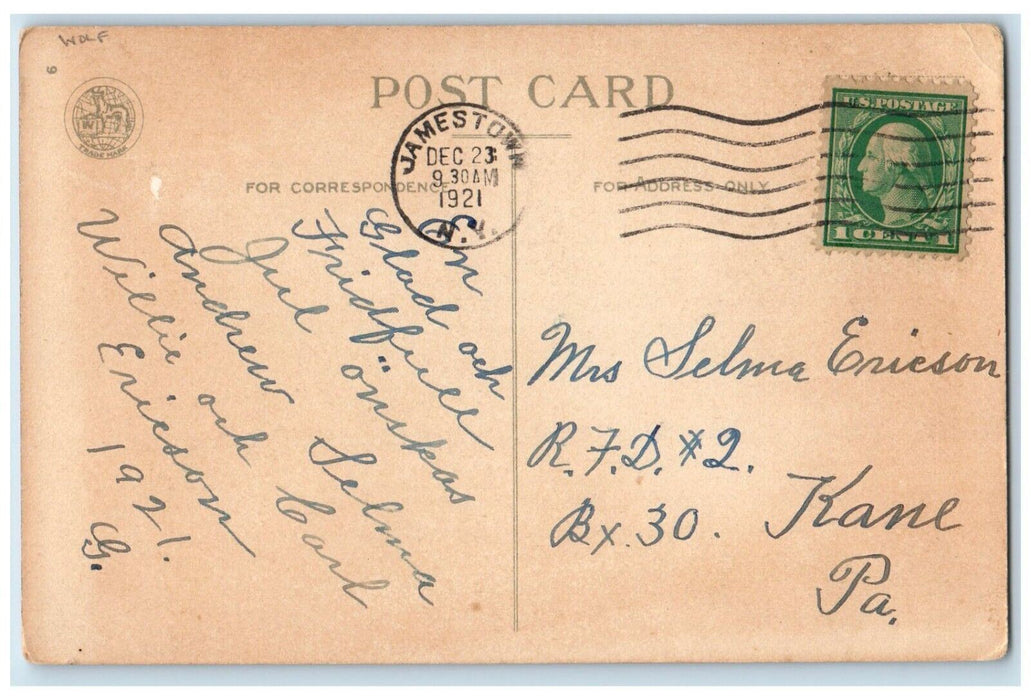 WOLF
6
TRADE MARK
POST CARD
JAMESTOWN
DEC 23
9.30AM
1921
N.Y.
U.S. POSTAGE
1 CENT 1
FOR CORRESPONDENCE
FOR ADDRESS ONLY
En
Glad och
Fridfull
Jul önskas
Andrew Selma
Willie och Carl
Ericson
1921.
G.
Mrs Selma Ericson
R.F.D. #2.
Bx. 30. Kane
Pa.